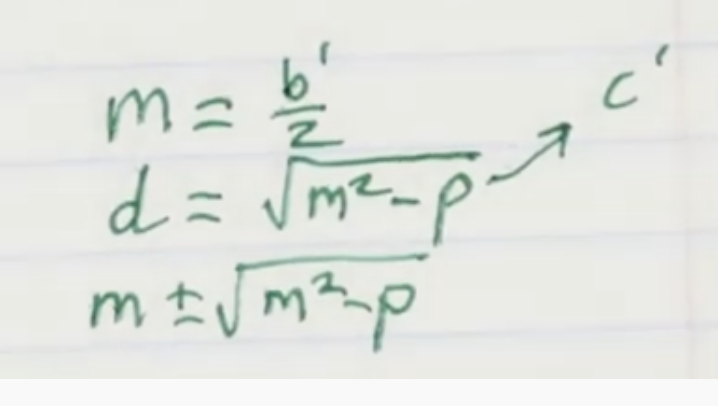 m = b'/2
d = √(m² - p) → c'
m ± √(m² - p)